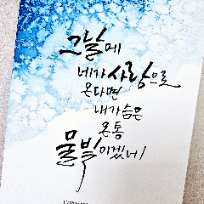 그날에
네가 사랑으로
온다면
내가슴은
온통
물빛이겠네!